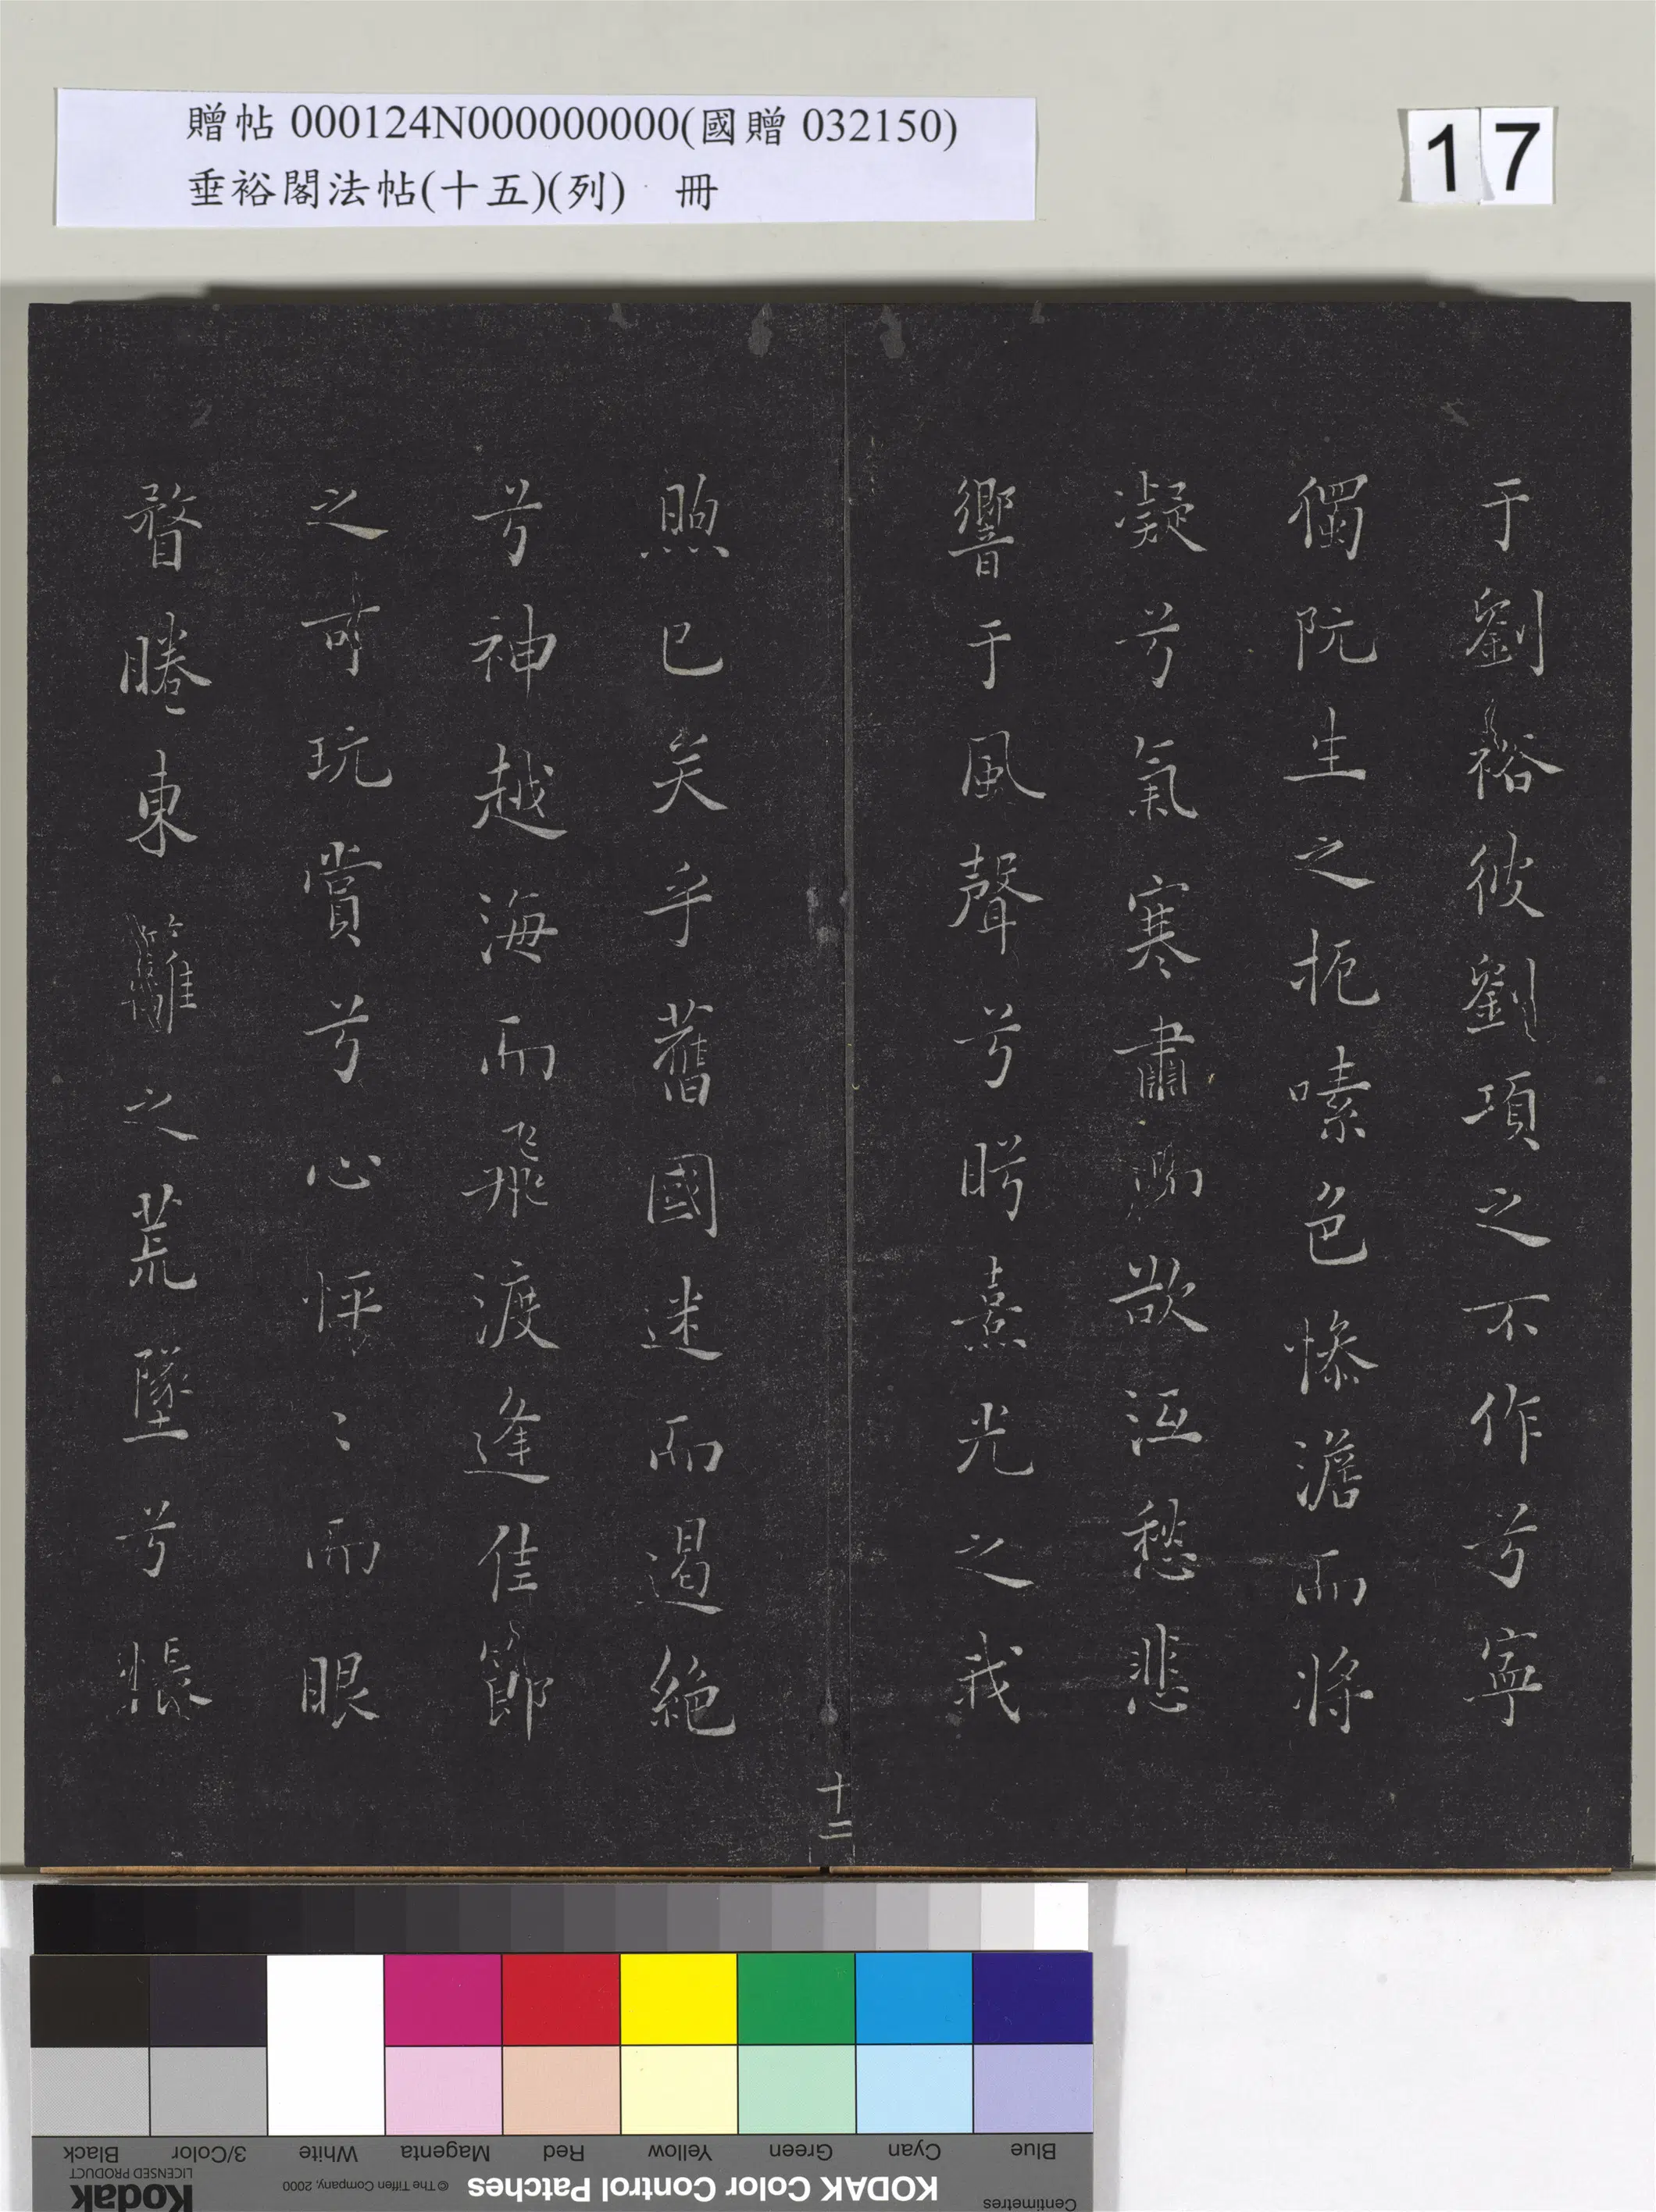 贈帖 000124N000000000(國贈 032150)
垂裕閣法帖(十五)(列) 冊
17
于劉裕彼劉項之不作兮寧
獨阮生之扼嗉色慘澹而將
凝兮氣寒肅而欲沍愁悲
響于風聲兮盻熹光之我
煦已矣乎舊國迷而遏絕
兮神越海而飛渡逢佳節
之可玩賞兮心怦〻而眼
瞀睠東籬之荒墜兮悵
十二
Blue
Cyan
Green
Yellow
Red
Magenta
White
3/Color
Black
Centimetres
KODAK Color Control Patches
© The Tiffen Company, 2000
Kodak
LICENSED PRODUCT